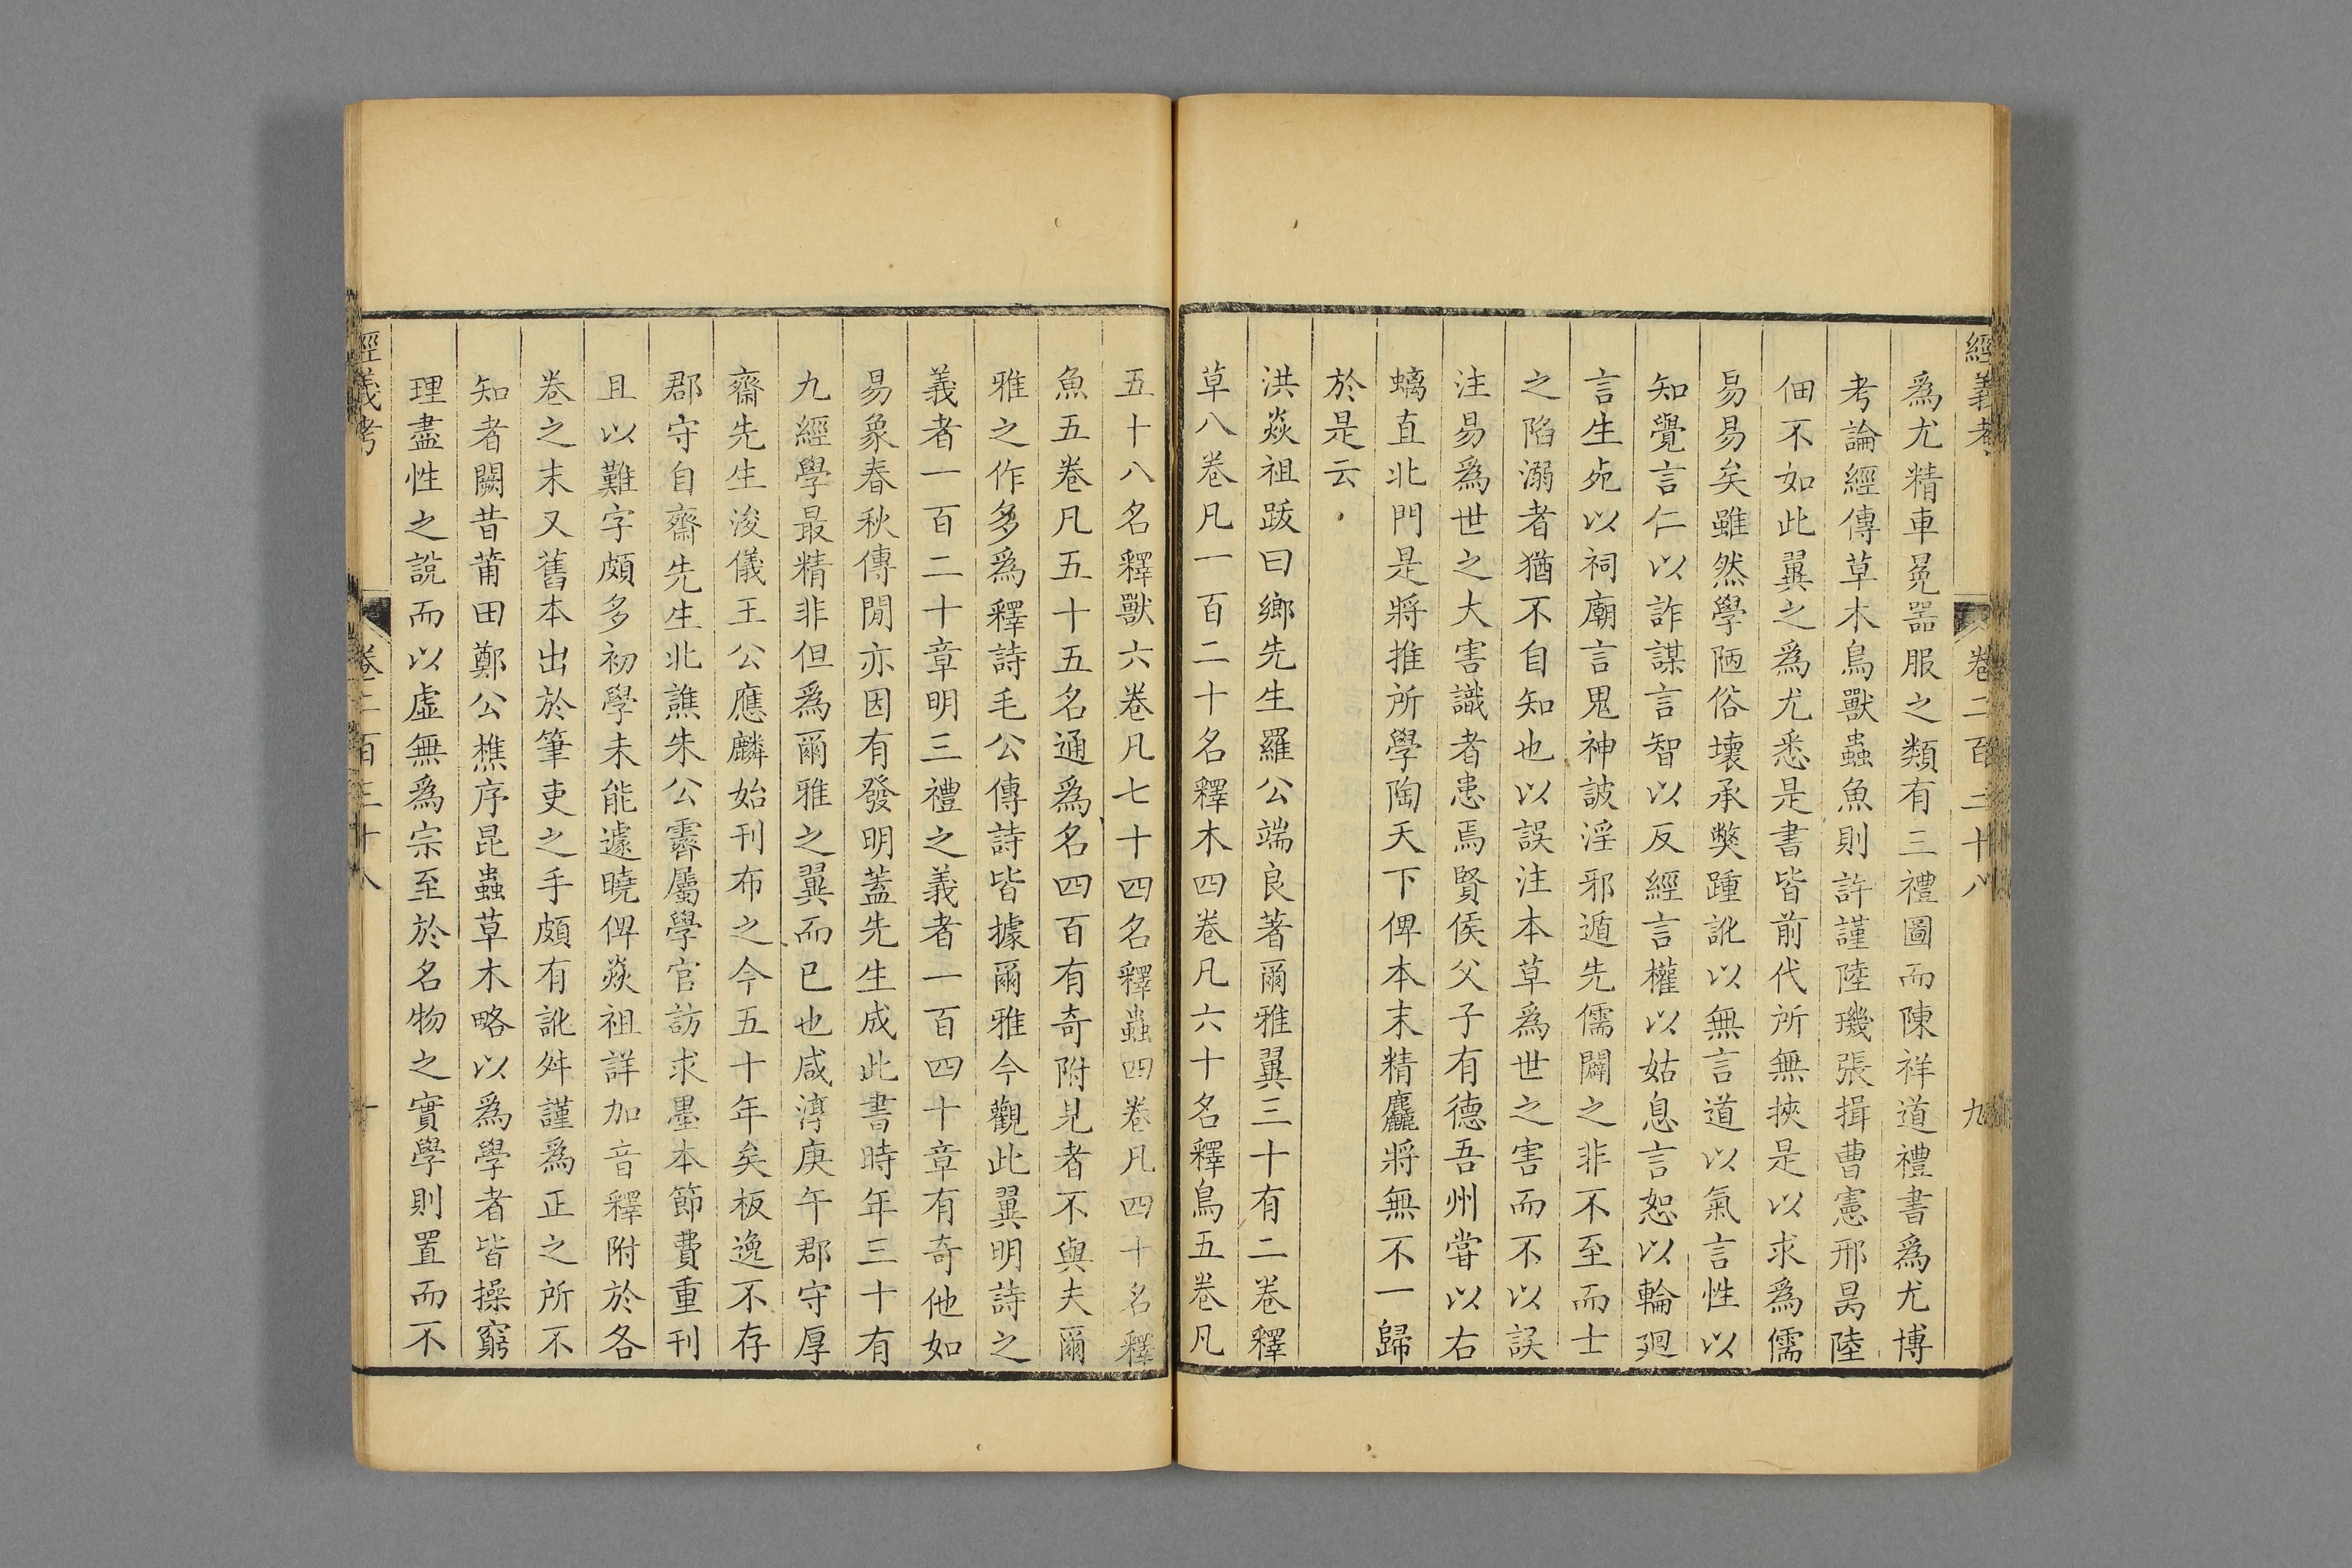 經義考 卷二百三十八 九
爲尤精車冕器服之類有三禮圖而陳祥道禮書爲尤博
考論經傳草木鳥獸蟲魚則許謹陸璣張揖曹憲邢昺陸
佃不如此翼之爲尤悉是書皆前代所無挾是以求爲儒
易易矣雖然學陋俗壞承弊踵訛以無言道以氣言性以
知覺言仁以詐謀言智以反經言權以姑息言恕以輪廻
言生死以祠廟言鬼神詖淫邪遁先儒闢之非不至而士
之陷溺者猶不自知也以誤注本草爲世之害而不以誤
注易爲世之大害識者患焉賢侯父子有德吾州嘗以右
螭直北門是將推所學陶天下俾本末精麤將無不一歸
於是云
洪焱祖跋曰鄉先生羅公端良著爾雅翼三十有二卷釋
草八卷凡一百二十名釋木四卷凡六十名釋鳥五卷凡
五十八名釋獸六卷凡七十四名釋蟲四卷凡四十名釋
魚五卷凡五十五名通爲名四百有奇附見者不與夫爾
雅之作多爲釋詩毛公傳詩皆據爾雅今觀此翼明詩之
義者一百二十章明三禮之義者一百四十章有奇他如
易象春秋傳閒亦因有發明蓋先生成此書時年三十有
九經學最精非但爲爾雅之翼而已也咸淳庚午郡守厚
齋先生浚儀王公應麟始刊布之今五十年矣板逸不存
郡守自齋先生北譙朱公霽屬學官訪求墨本節費重刊
且以難字頗多初學未能遽曉俾焱祖詳加音釋附於各
卷之末又舊本出於筆吏之手頗有訛舛謹爲正之所不
知者闕昔莆田鄭公樵序昆蟲草木略以爲學者皆操窮
理盡性之說而以虛無爲宗至於名物之實學則置而不
經義考 卷二百三十八 十